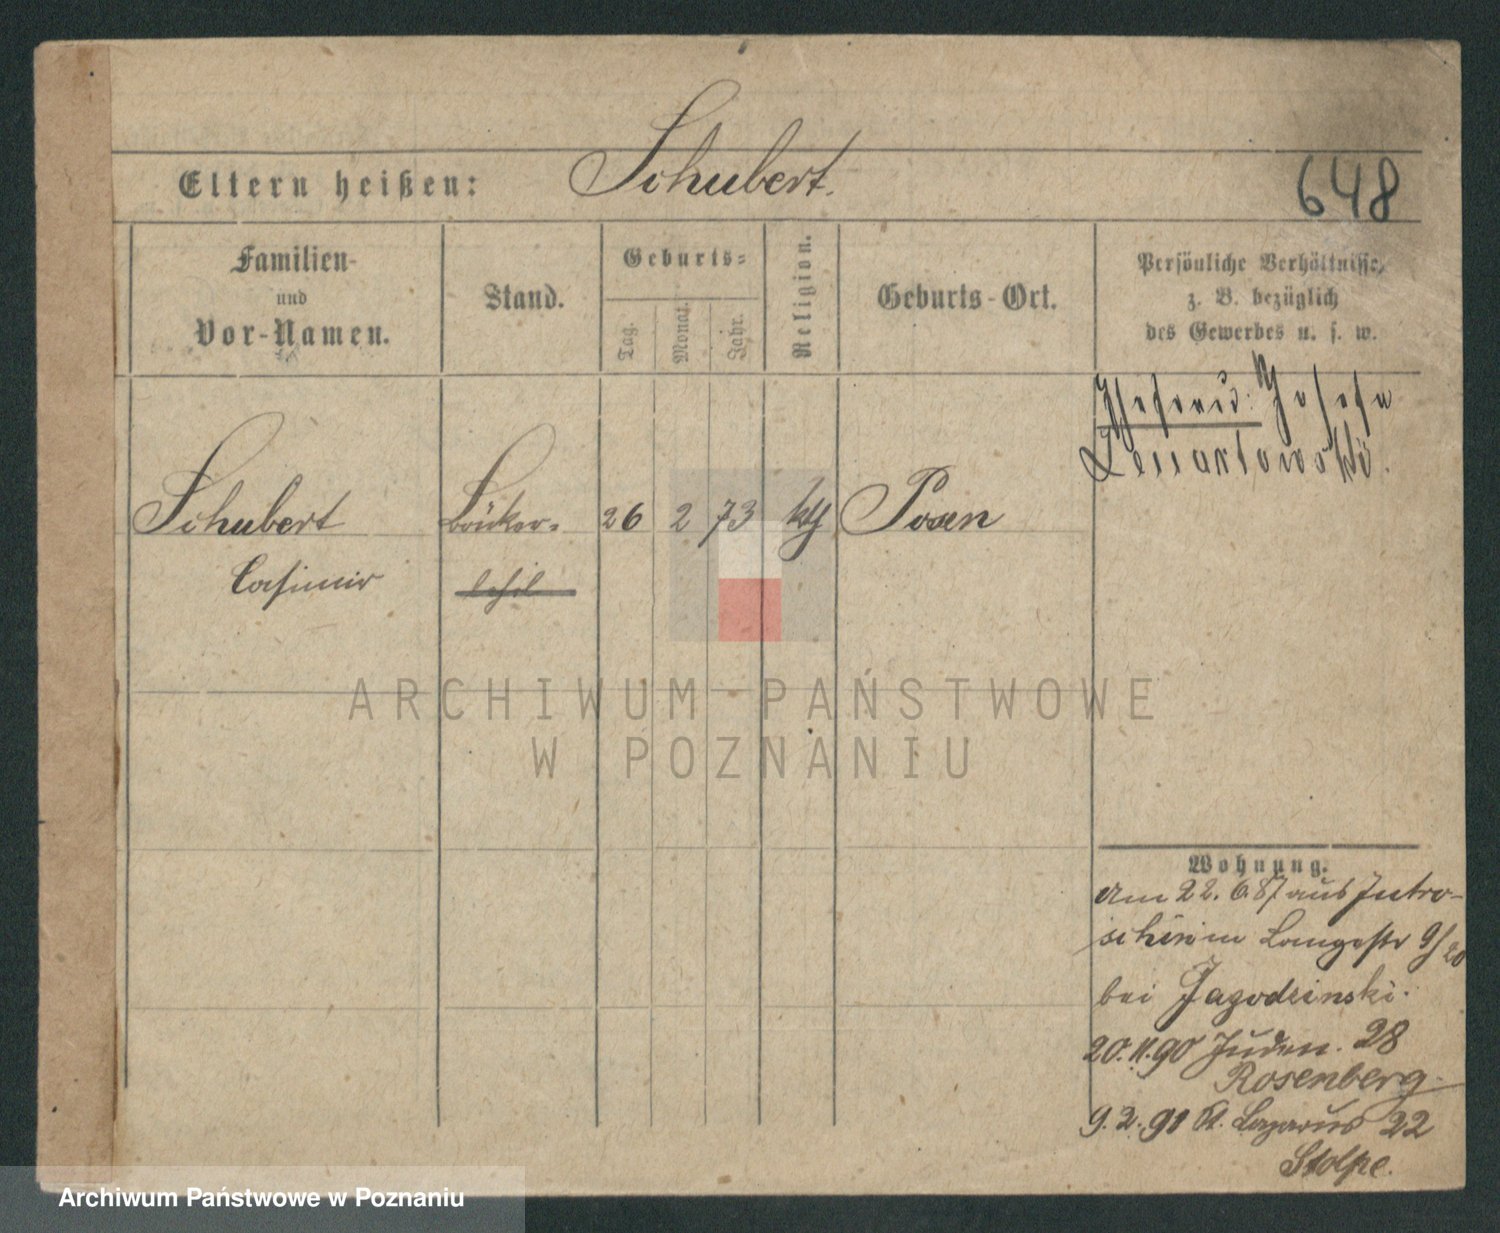 Schubert.
Eltern heißen:
648
Familien-
und
Vor-Namen.
Stand.
Geburts-
Tag.
Monat.
Jahr.
Religion.
Geburts-Ort.
Persönliche Verhältnisse,
z. B. bezüglich
des Gewerbes u. s. w.
Josefa
Schubert
26 2 73 kth
Posen
Casimir
ARCHIWUM PAŃSTWOWE
W POZNANIU
Wohnung.
am 22. 6. 87 aus Jutro-
schin in Langestr 9/20
bei Jagodzinski.
20.11.90 Juden. 28
Rosenberg
9.2.91 St. Lazarus 22
Stolpe.
Archiwum Państwowe w Poznaniu